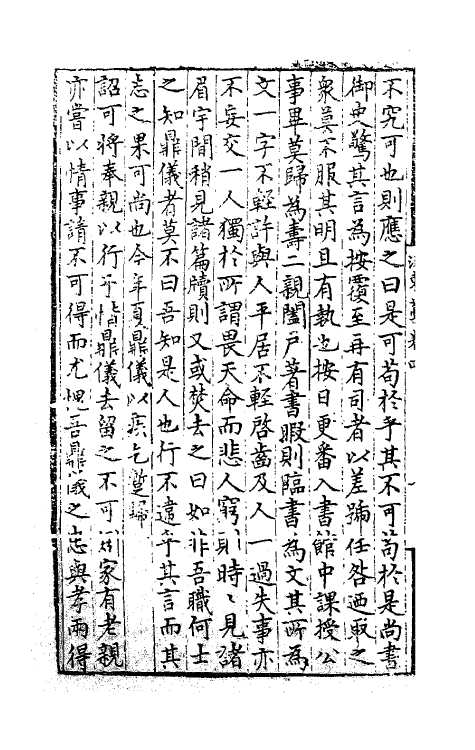 不究可也則應之曰是可苟於乎其不可苟於是尚書
御史驚其言為按覆至再有司者以差觴任咎迺取之
衆莫不服其明且有執也按日更番入書館中課授公
事畢莫歸為壽二親闔戶著書暇則臨書為文其所為
文一字不輕許與人平居不輕啓齒及人一過失事亦
不妄交一人獨於所謂畏天命而悲人窮則時〻見諸
眉宇間稍見諸篇牘則又或焚去之曰如非吾職何士
之知鼎儀者莫不曰吾知是人也行不違乎其言而其
志之果可尚也今年夏鼎儀以疾乞蹔歸
詔可將奉親以行予惜鼎儀去留之不可以家有老親
亦嘗以情事請不可得而尤愧吾鼎儀之志與孝兩得